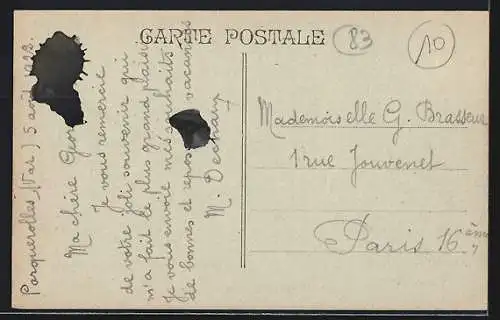 CARTE POSTALE
83
10
Porquerolles (Var) 5 août 1923
Ma chère Geor
Je vous remercie
de votre joli souvenir qui
m'a fait le plus grand plaisir
Je vous envoie mes souhaits
de bonnes et repos vacances
M.
Mademoiselle G. Brasseur
1 rue Jouvenet
Paris 16ème